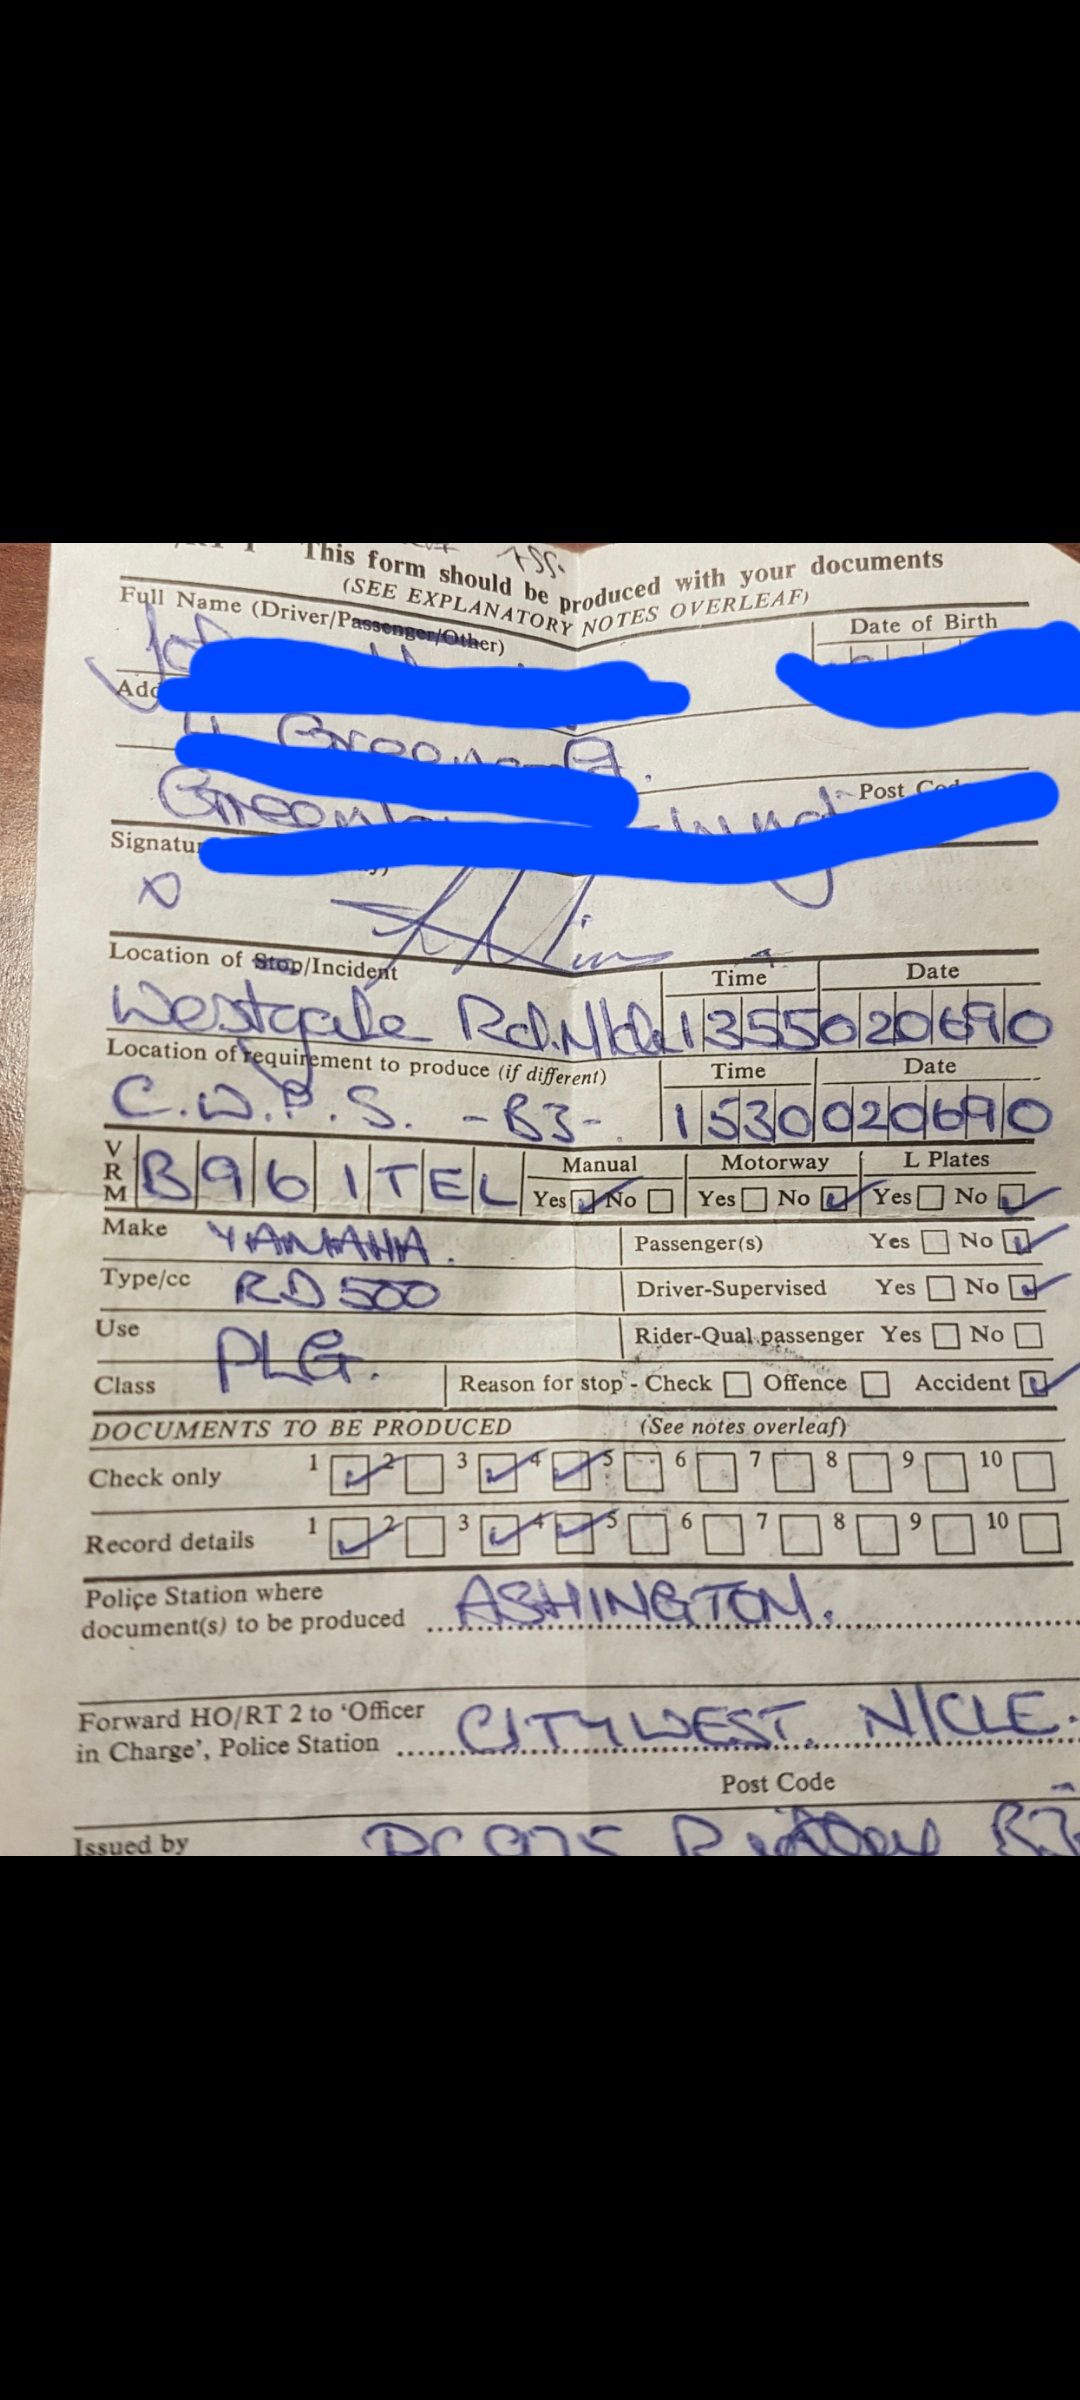 This form should be produced with your documents
(SEE EXPLANATORY NOTES OVERLEAF)
Full Name (Driver/Passenger/Other)
Date of Birth
Post
Location of Stop/Incident Time Date
Westgate Rd. N/cle 1355 020690
Location of requirement to produce (if different) Time Date
C.W.P.S. - B3 - 1530 020690
VRM B961TEL Manual Motorway L Plates
Yes No Yes No Yes No
Make YAMAHA. Passenger(s) Yes No
Type/cc RD 500 Driver-Supervised Yes No
Use Rider-Qual.passenger Yes No
PLG.
Class Reason for stop - Check Offence Accident
DOCUMENTS TO BE PRODUCED (See notes overleaf)
Check only 1 2 3 4 5 6 7 8 9 10
Record details 1 2 3 4 5 6 7 8 9 10
Police Station where
document(s) to be produced ASHINGTON.
Forward HO/RT 2 to 'Officer
in Charge', Police Station CITY WEST. N/CLE.
Post Code
Issued by PC 975 B3